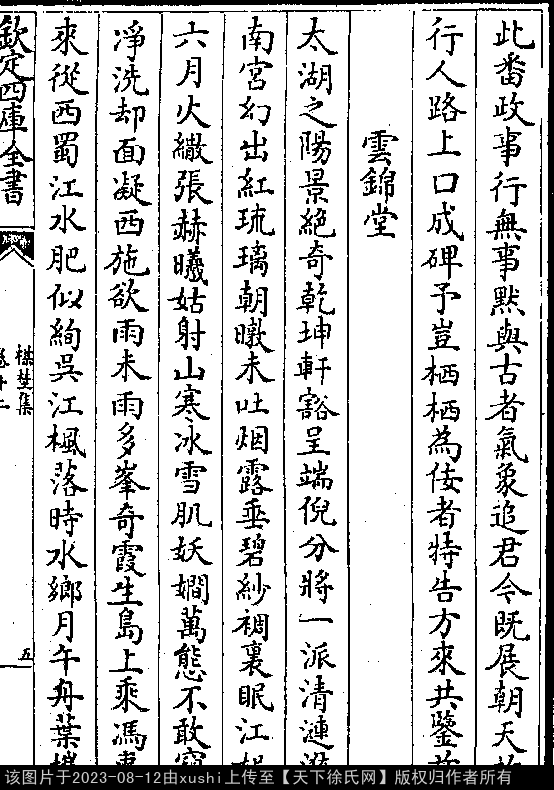 此番政事行無事黙與古者氣象追君今既展朝天
行人路上口成碑予豈栖栖為佞者特告方來共鑒
雲錦堂
太湖之陽景絶奇乾坤軒豁呈端倪分將一派清漣
南宮幻出紅琉璃朝暾未吐烟露垂碧紗裯裏眠江
六月火繖張赫曦姑射山寒冰雪肌妖嫺萬態不敢窺
淨洗却面凝西施欲雨未雨多峯奇霞生島上乘馮
來從西蜀江水肥似絢吳江楓落時水鄉月午舟葉
欽定四庫全書
楳埜集
卷十二
五
该图片于2023-08-12由xushi上传至【天下徐氏网】版权归作者所有